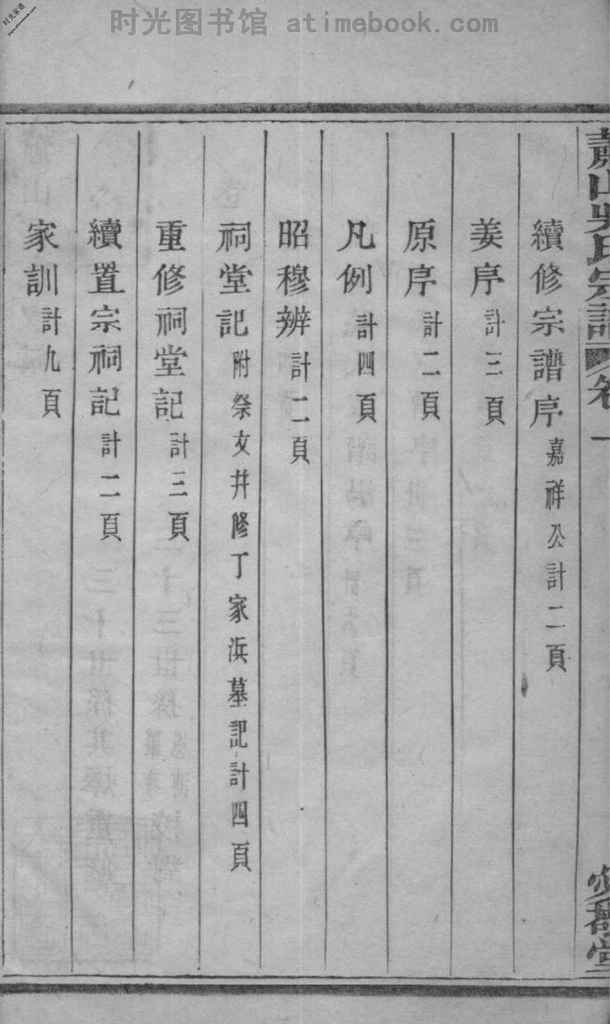 时光图书馆 atimebook.com
蕭山吳氏宗譜 卷一
續修宗譜序 嘉祥公計二頁
姜序 計三頁
原序 計二頁
凡例 計四頁
昭穆辨 計二頁
祠堂記 附祭文并修丁家浜墓記計四頁
重修祠堂記 計三頁
續置宗祠記 計二頁
家訓 計九頁